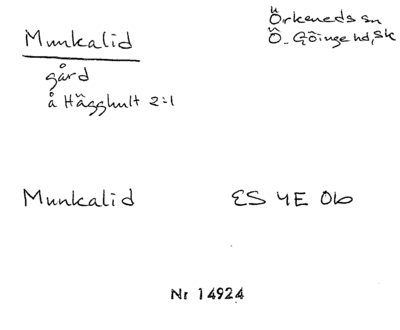 Munkalid
Örkeneds sn
Ö. Göinge hd, Sk
gård
å Hägghult 2:1
Munkalid ES 4E 0b
Nr 14924